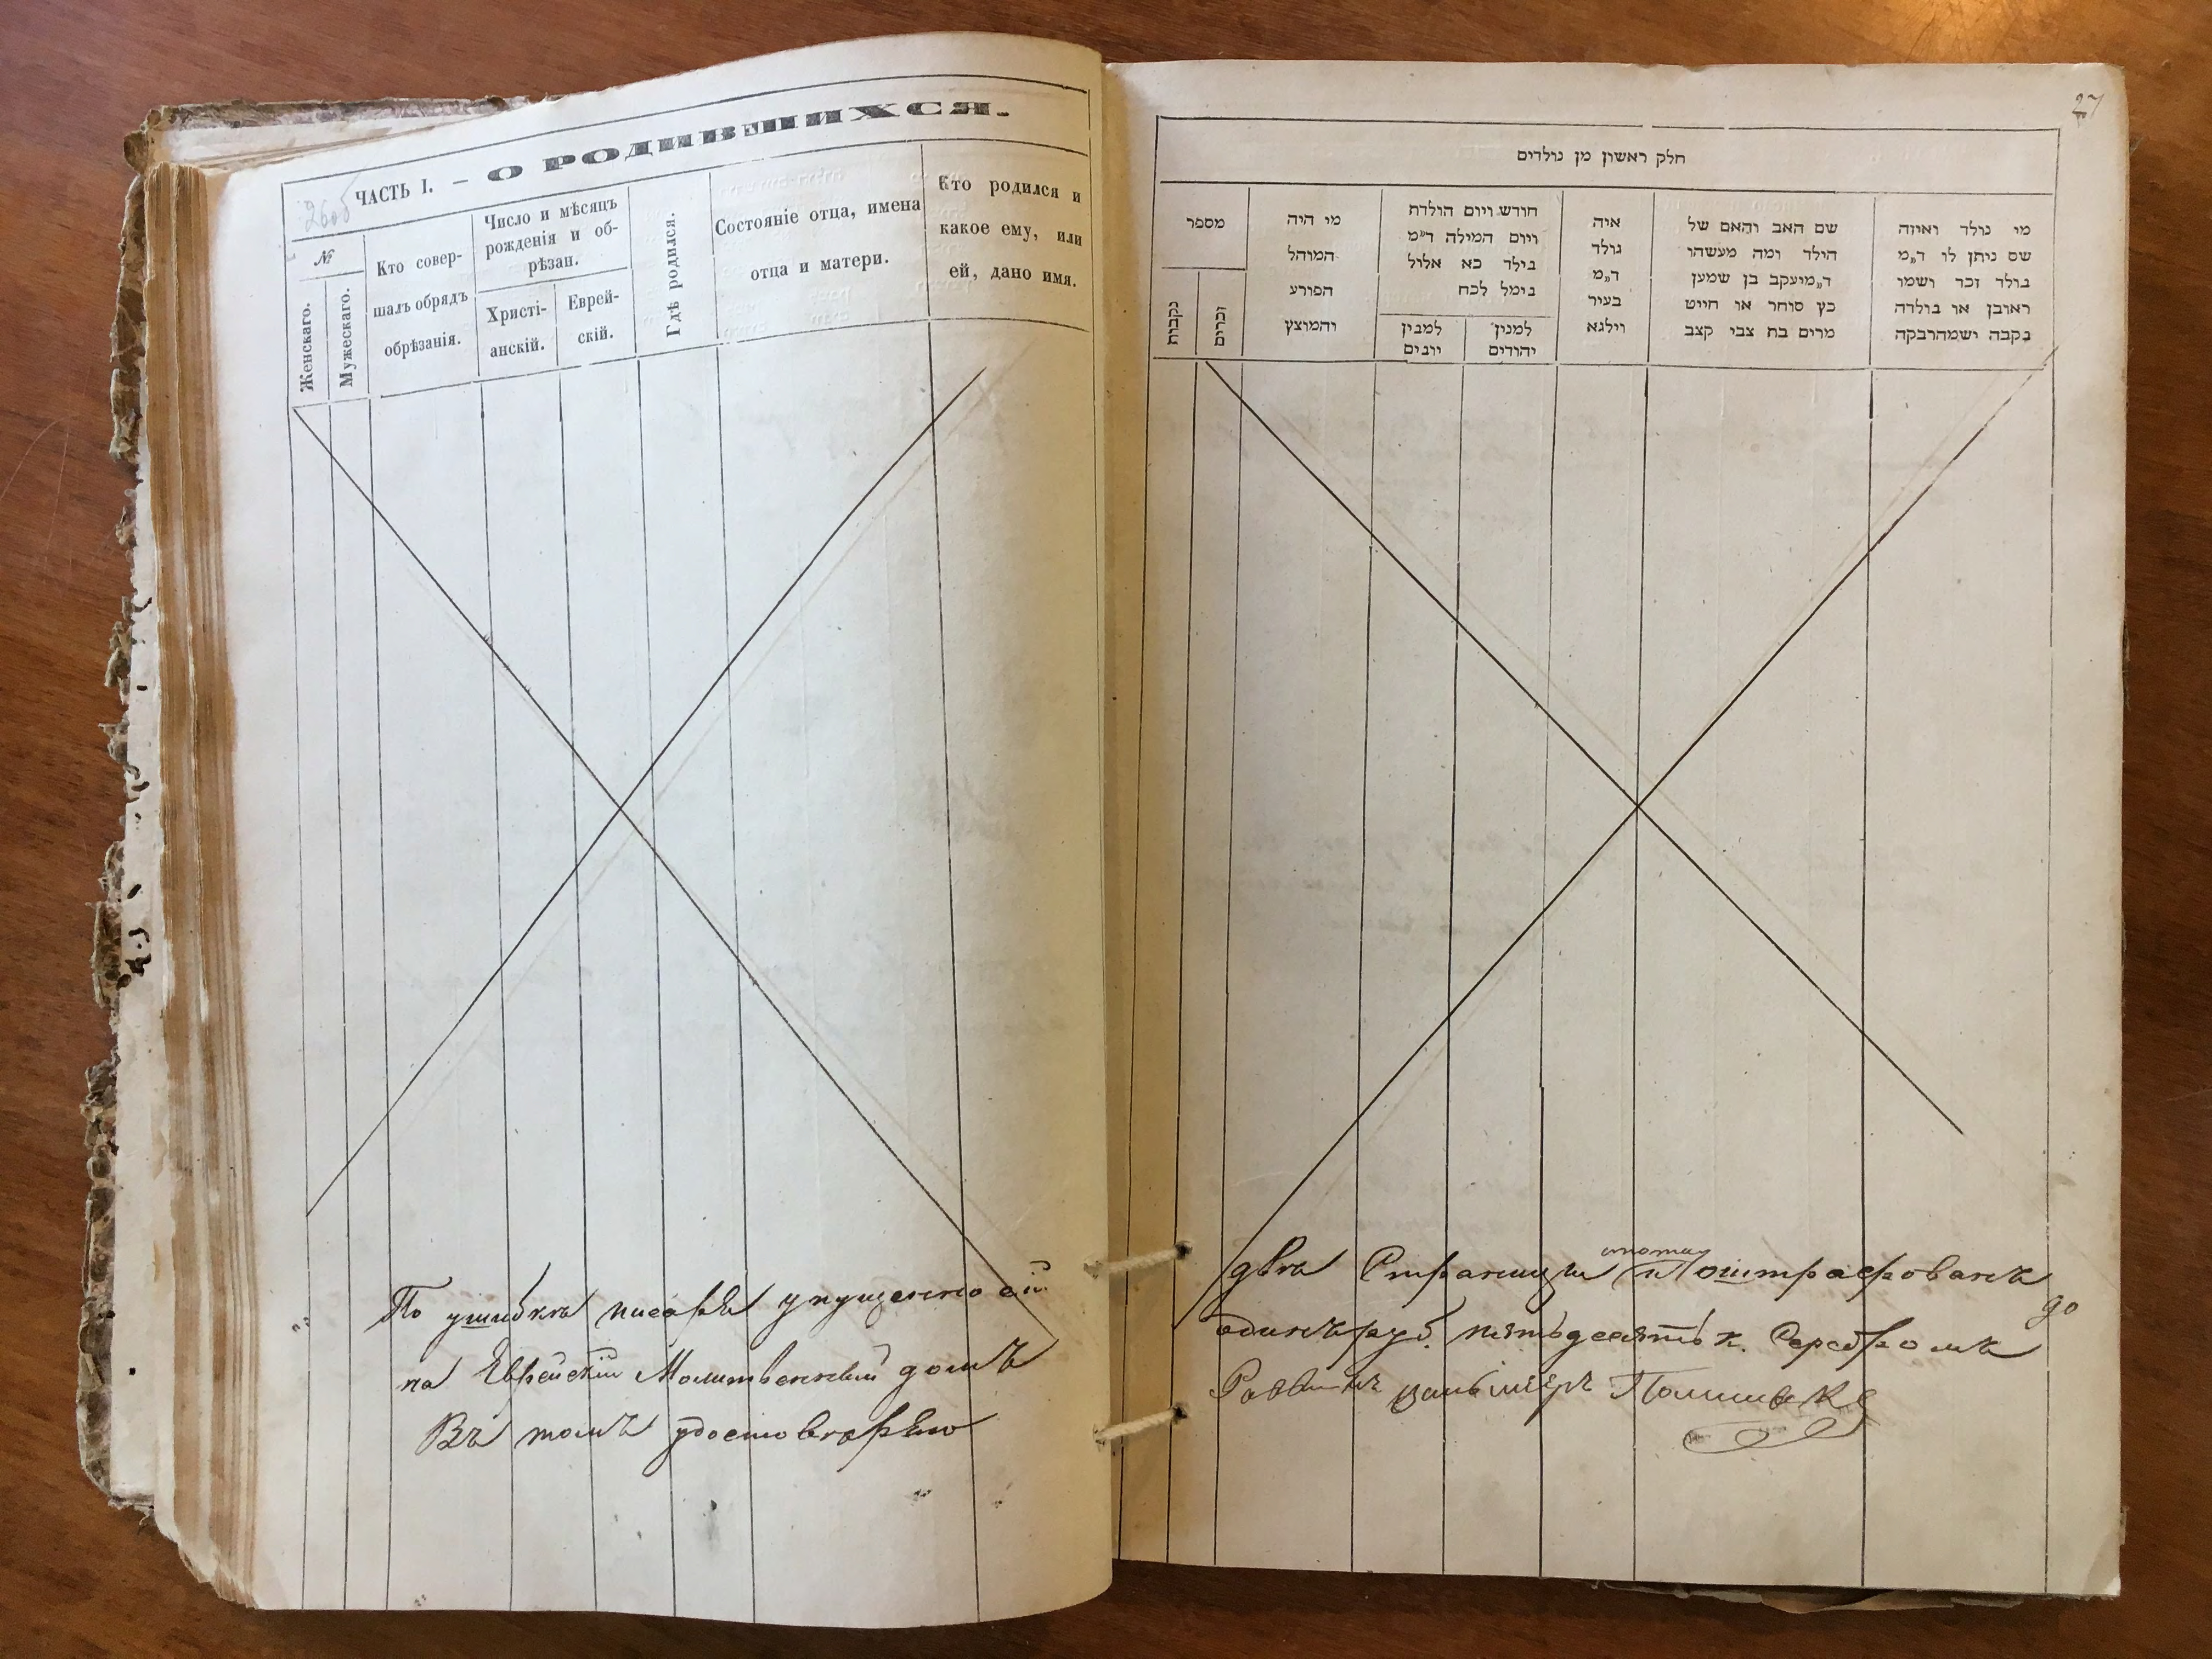 26об
ЧАСТЬ I. – О РОДИВШИХСЯ.
№
Женскаго.
Мужескаго.
Кто совер-
шалъ обрядъ
обрѣзанія.
Число и мѣсяцъ
рожденія и об-
рѣзан.
Христі-
анскій.
Еврей-
скій.
Гдѣ родился.
Состояніе отца, имена
отца и матери.
Кто родился и
какое ему, или
ей, дано имя.
По ушибкѣ писаря упущенно сіи
на Еврейскіи Молитвенный домъ
Въ томъ удостовѣряю
27
חלק ראשון מן נולדים
מספר
נקבות
זכרים
מי היה
המוהל
הפורע
והמוצץ
חודש ויום הולדת
ויום המילה ד״מ
בילד כא אלול
בימל לכח
למבין
יוונים
למנין
יהודים
איה
נולד
ד״מ
בעיר
ווילנא
שם האב והאם של
הילד ומה מעשהו
ד״מ יעקב בן שמעון
כץ סוחר או חייט
מרים בת צבי קצב
מי נולד ואיזה
שם ניתן לו ד״מ
נולד זכר ושמו
ראובן או נולדה
נקבה ושמה רבקה
двѣ Страницы и оштрафованъ до
одинъ руб. пятьдесятъ к. Серебромъ
Раввинъ